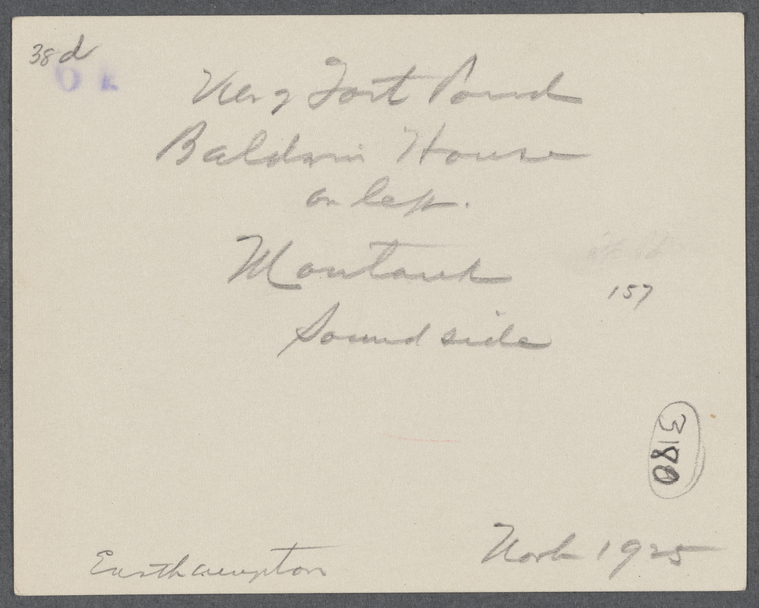 38d
OK
View of Fort Pond
Baldwin House
on left.
Montauk
157
Sound side
3180
Easthampton
1925